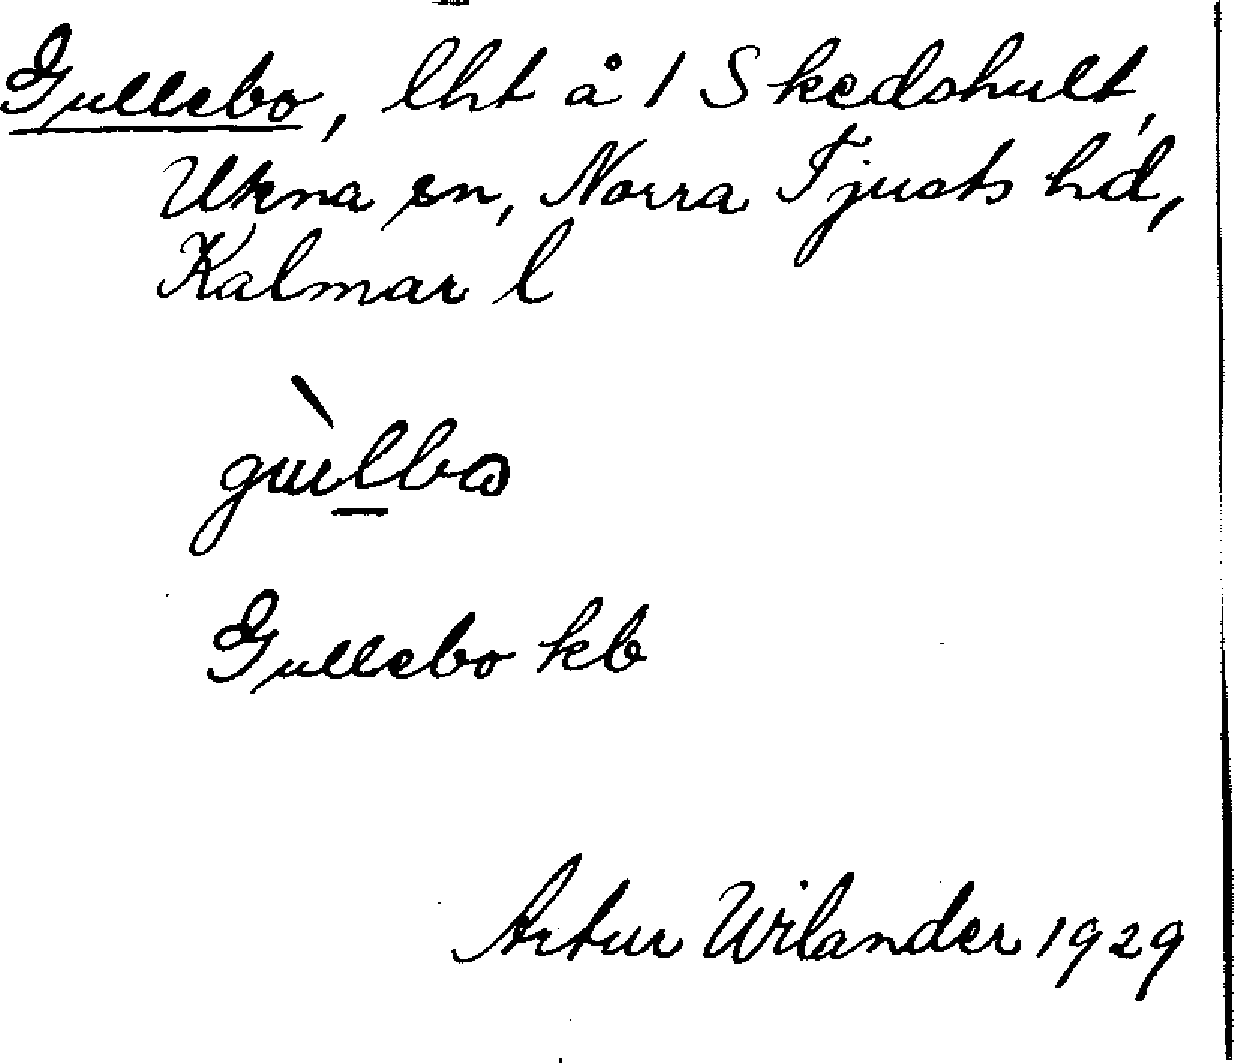 Gullebo, lht å 1 Skedshult,
Ukna sn, Norra Tjusts hd,
Kalmar l
gùllbω
Gullebo kb
Artur Wilander 1929